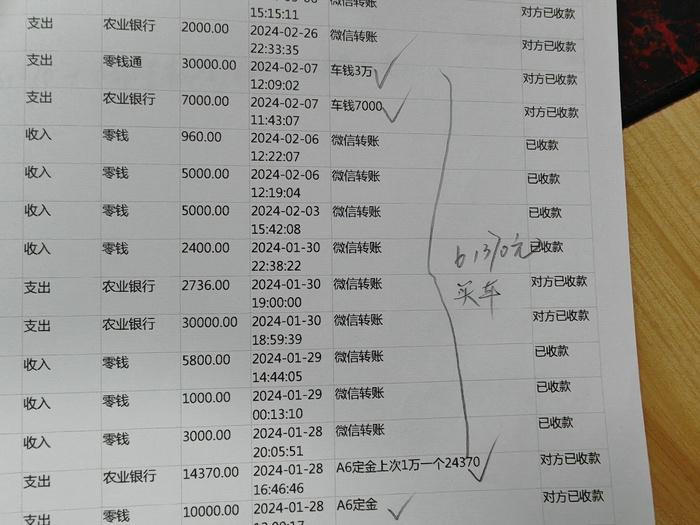 15:15:11 微信转账 对方已收款
支出 农业银行 2000.00 2024-02-26 微信转账 对方已收款
22:33:35
支出 零钱通 30000.00 2024-02-07 车钱3万 对方已收款
12:09:02
支出 农业银行 7000.00 2024-02-07 车钱7000 对方已收款
11:43:07
收入 零钱 960.00 2024-02-06 微信转账 已收款
12:22:07
收入 零钱 5000.00 2024-02-06 微信转账 已收款
12:19:04
收入 零钱 5000.00 2024-02-03 微信转账 已收款
15:42:08
收入 零钱 2400.00 2024-01-30 微信转账 已收款
22:38:22
61370元
支出 农业银行 2736.00 2024-01-30 微信转账 对方已收款
19:00:00
买车
支出 农业银行 30000.00 2024-01-30 微信转账 对方已收款
18:59:39
收入 零钱 5800.00 2024-01-29 微信转账 已收款
14:44:05
收入 零钱 1000.00 2024-01-29 微信转账 已收款
00:13:10
收入 零钱 3000.00 2024-01-28 微信转账 已收款
20:05:51
支出 农业银行 14370.00 2024-01-28 A6定金上次1万一个24370 对方已收款
16:46:46
支出 零钱 10000.00 2024-01-28 A6定金 对方已收款